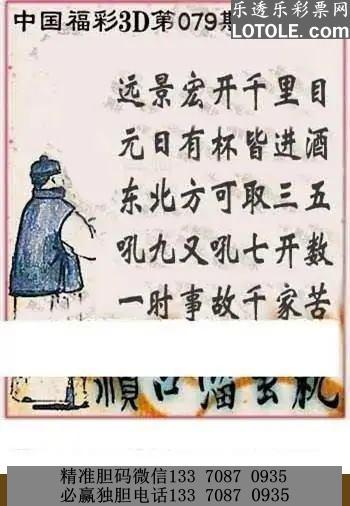 乐透乐彩票网
LOTOLE.COM
中国福彩3D第079期
远景宏开千里目
元日有杯皆进酒
东北方可取三五
吼九又吼七开数
一时事故千家苦
精准胆码微信133 7087 0935
必赢独胆电话133 7087 0935